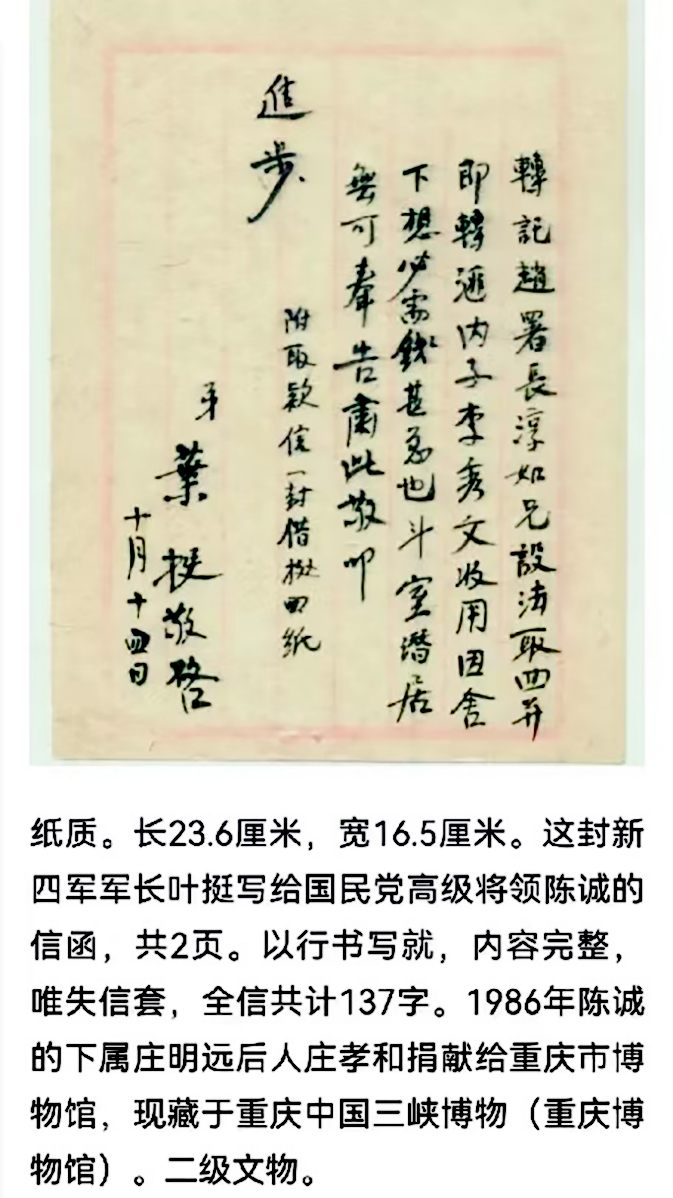 轉託趙署長淳如兄設法取回并
即轉滙内子李秀文收用因舍
下想必需錢甚急也斗室潛居
無可奉告肅此敬叩
進步
附取款信一封借據四纸
弟
葉挺敬啓
十月十四日
纸质。长23.6厘米，宽16.5厘米。这封新
四军军长叶挺写给国民党高级将领陈诚的
信函，共2页。以行书写就，内容完整，
唯失信套，全信共计137字。1986年陈诚
的下属庄明远后人庄孝和捐献给重庆市博
物馆，现藏于重庆中国三峡博物（重庆博
物馆）。二级文物。